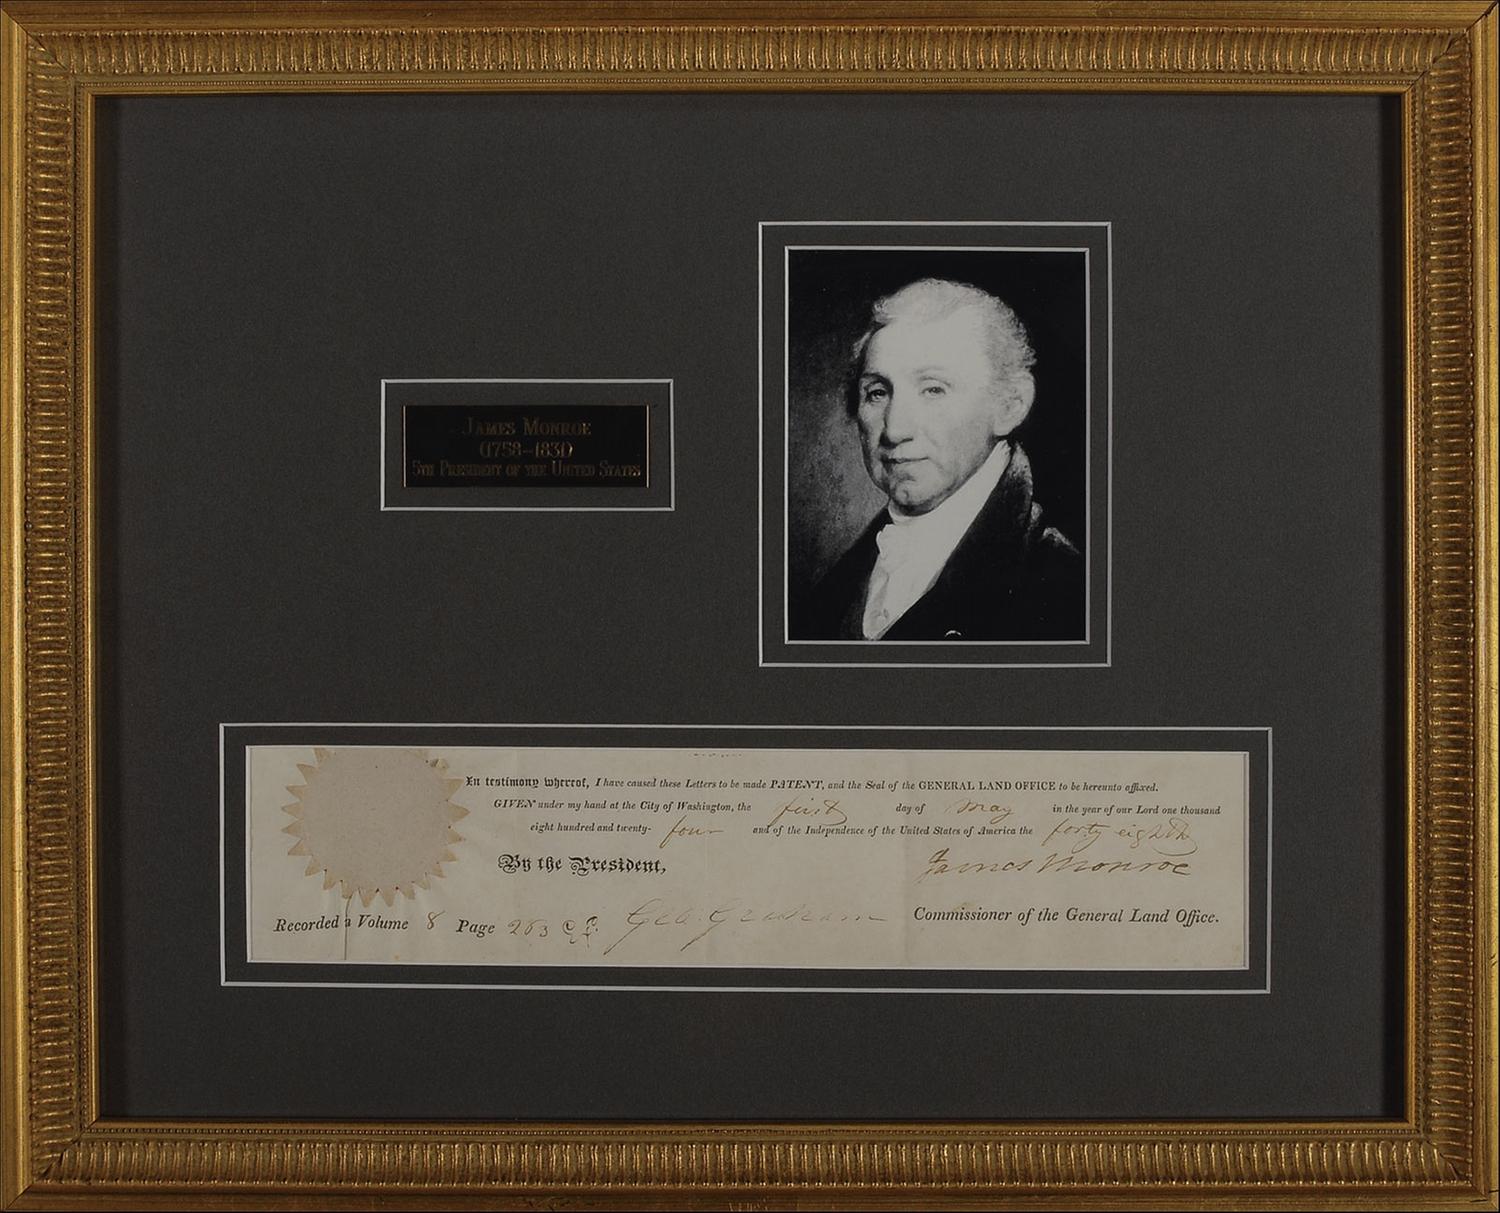 James Monroe
(1758–1831)
5th President of the United States
In testimony whereof, I have caused these Letters to be made PATENT, and the Seal of the GENERAL LAND OFFICE to be hereunto affixed.
GIVEN under my hand at the City of Washington, the first day of May in the year of our Lord one thousand
eight hundred and twenty- four and of the Independence of the United States of America the forty eighth
By the President, James Monroe
Geo: Graham Commissioner of the General Land Office.
Recorded Volume 8 Page 263